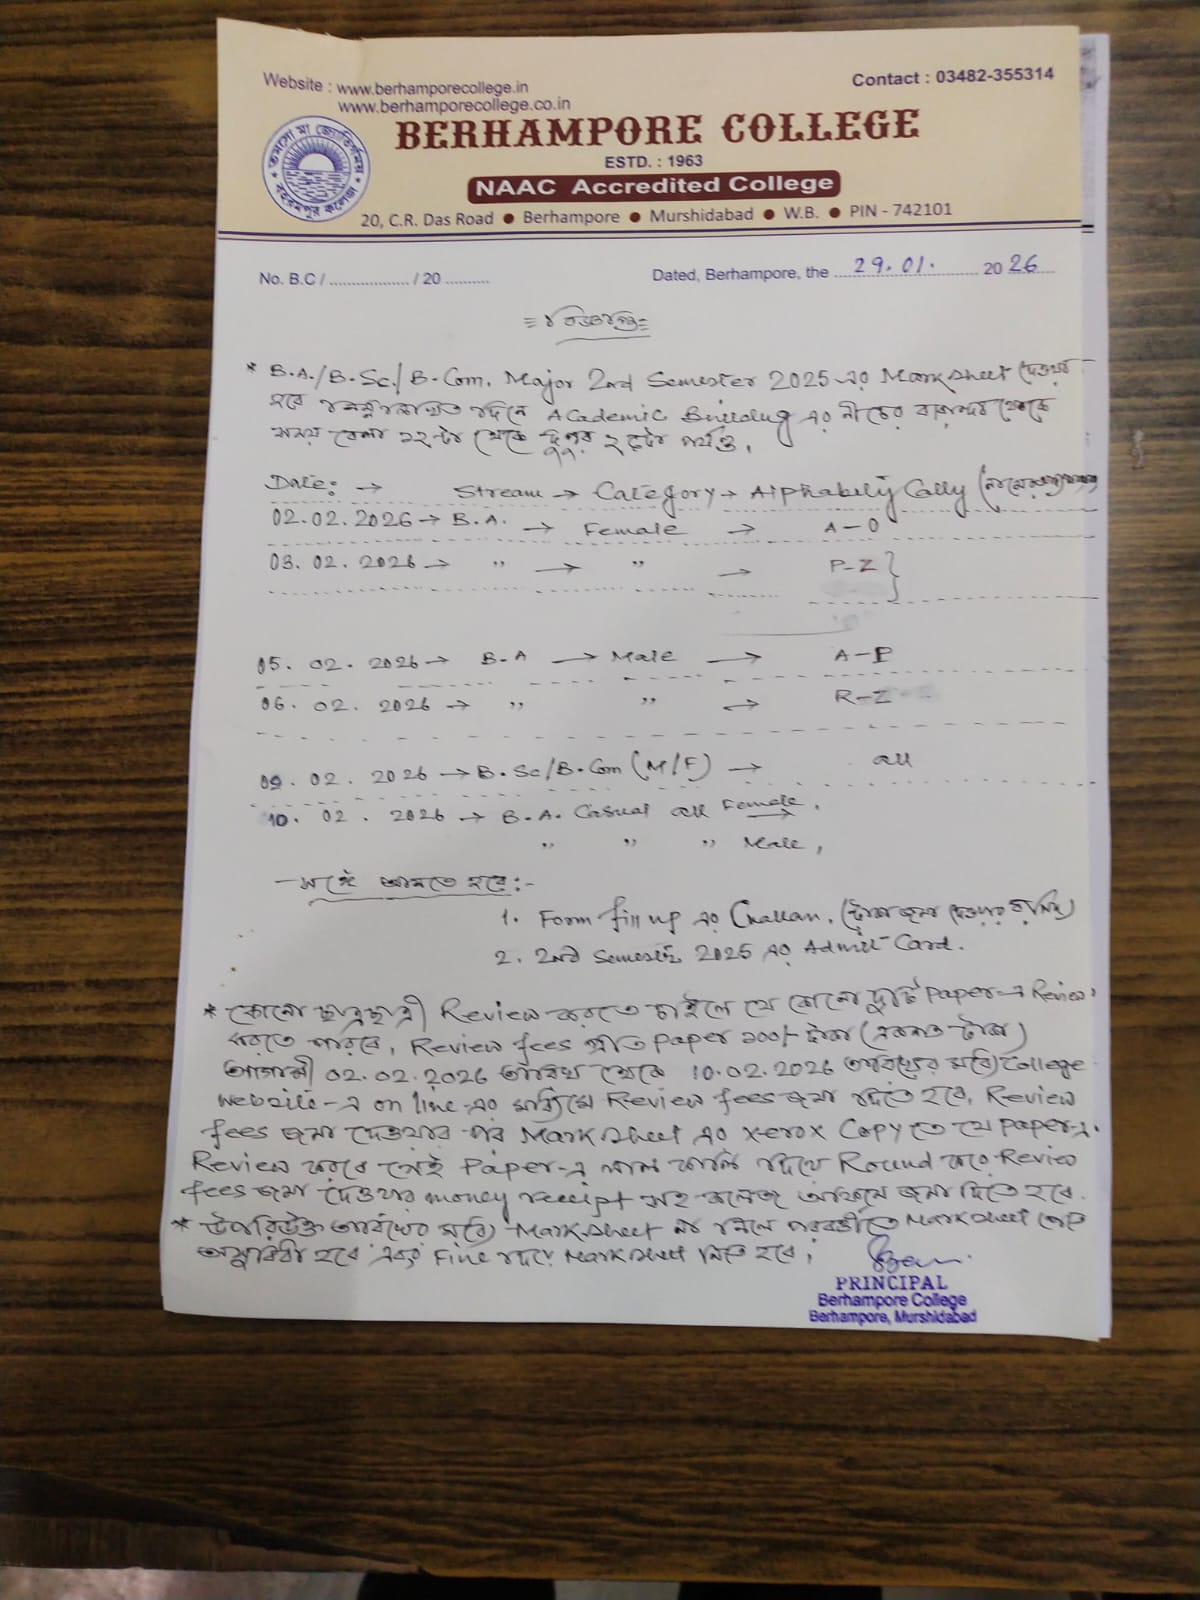 Website : www.berhamporecollege.in
www.berhamporecollege.co.in
Contact : 03482-355314
তমসো মা জ্যোতির্গময়
বহরমপুর কলেজ
BERHAMPORE COLLEGE
ESTD. : 1963
NAAC Accredited College
20, C.R. Das Road ● Berhampore ● Murshidabad ● W.B. ● PIN - 742101
No. B.C / ................... / 20 ..........
Dated, Berhampore, the 29.01. 2026
বিজ্ঞপ্তি
* B.A./B.Sc./B.Com. Major 2nd Semester 2025 এর Marksheet দেওয়া
হবে নিম্নলিখিত দিনে Academic Building এর নীচের বারান্দা থেকে
সময় বেলা ১২টা থেকে দুপুর পর্যন্ত।
Date: → Stream → Category → Alphabetically (নামের
02.02.2026 → B.A. → Female → A-O
03.02.2026 → " → " → P-Z }
05.02.2026 → B.A → Male → A-P
06.02.2026 → " " → R-Z
09.02.2026 → B.Sc/B.Com (M/F) → all
10.02.2026 → B.A. Casual all Female,
" " " Male,
সঙ্গে আনতে হবে:-
1. Form fill up এর Challan, (টাকা জমা দেওয়ার রসিদ)
2. 2nd Semester 2025 এর Admit Card.
* কোনো ছাত্রছাত্রী Review করতে চাইলে যে কোনো দুটি Paper-এ Review
করতে পারবে, Review fees প্রতি paper ১০০/- টাকা (একশত টাকা)
আগামী 02.02.2026 তারিখ থেকে 10.02.2026 তারিখের মধ্যে College
website-এ on line-এর মাধ্যমে Review fees জমা দিতে হবে, Review
fees জমা দেওয়ার পর Marksheet এর xerox copy তে যে paper-এ
Review করবে সেই Paper-এ লাল কালি দিয়ে Round করে Review
fees জমা দেওয়ার money receipt সহ কলেজ অফিসে জমা দিতে হবে.
* উপরিউক্ত তারিখের মধ্যে Marksheet না নিলে পরবর্তীতে Marksheet পেতে
অসুবিধা হবে এবং Fine দিয়ে Marksheet নিতে হবে।
PRINCIPAL
Berhampore College
Berhampore, Murshidabad